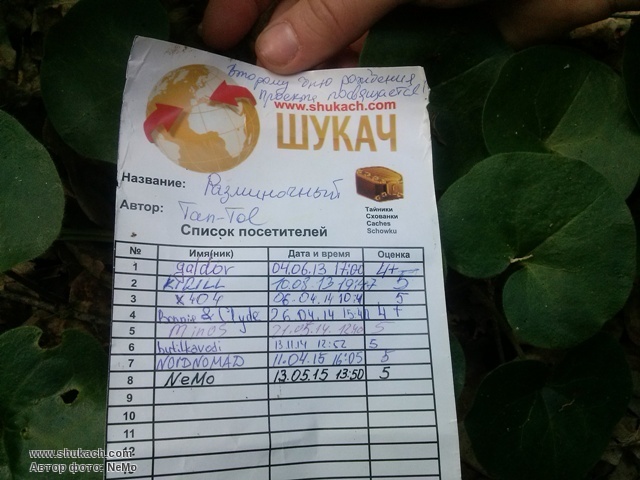 Второму дню рождения
проекта посвящается!
www.shukach.com
ШУКАЧ
Название: Разминочный
Автор: Tan-Tol
Тайники
Схованки
Caches
Schowku
Список посетителей
№ Имя(ник) Дата и время Оценка
1 galdor 04.06.13 17:00 4+
2 KIRILL 10.08.13 5
3 x404 06.04.14 5
4 Bonnie & Clyde 26.04.14 4+
5 Minos 21.05.14 5
6 13.11.14 12:52 5
7 NOIDNOMAD 11.04.15 16:05 5
8 NeMo 13.05.15 13:50 5
9
10
11
12
www.shukach.com
Автор фото: NeMo